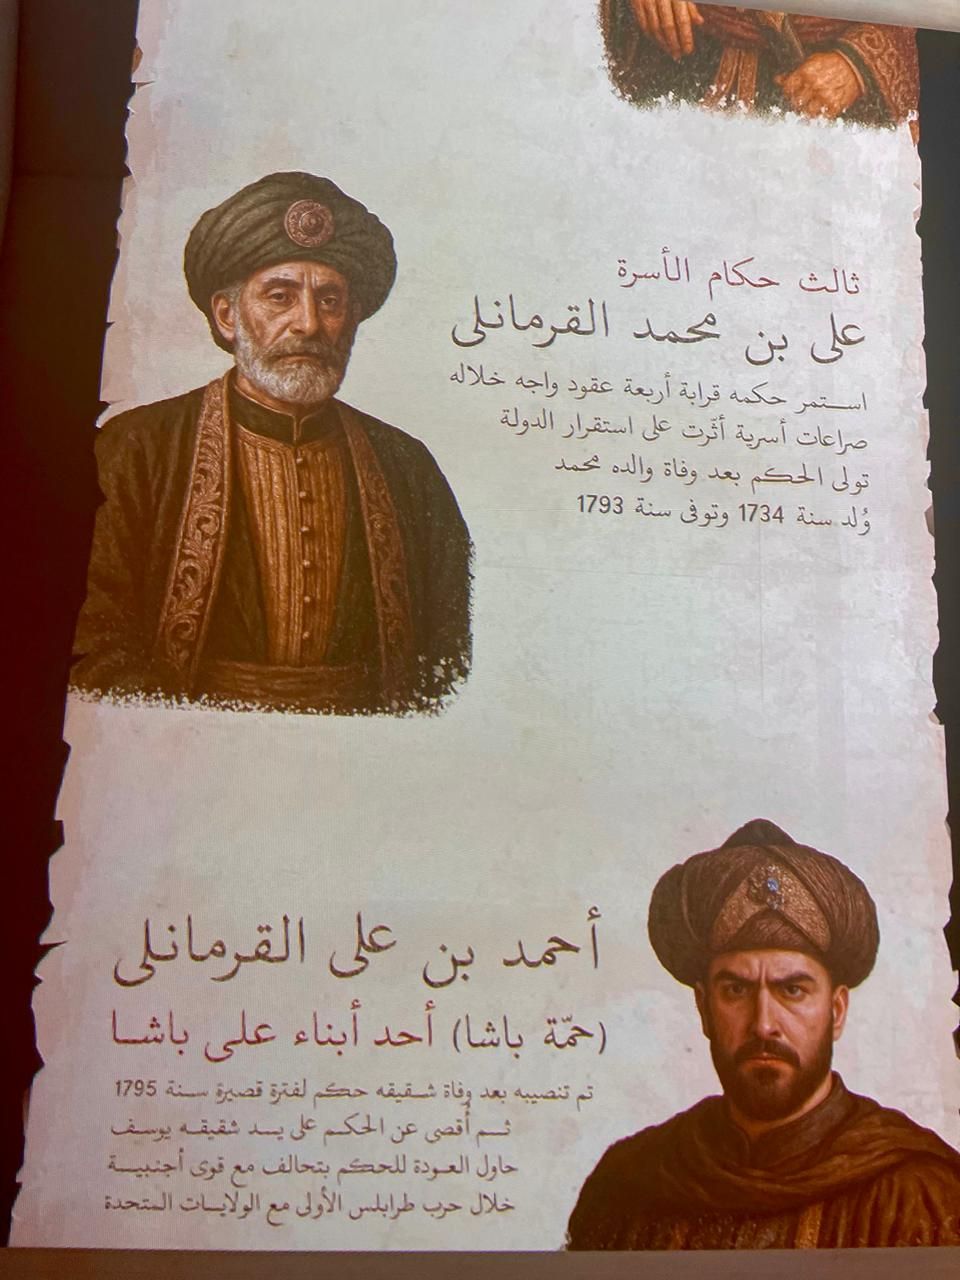 ثالث حكام الأسرة
على بن محمد القرمانلى
استمر حكمه قرابة أربعة عقود واجه خلاله
صراعات أسرية أثّرت على استقرار الدولة
تولى الحكم بعد وفاة والده محمد
وُلد سنة 1734 وتوفى سنة 1793
أحمد بن على القرمانلى
(حمّة باشا) أحد أبناء على باشا
تم تنصيبه بعد وفاة شقيقه حكم لفترة قصيرة سنة 1795
ثم أُقصى عن الحكم على يد شقيقه يوسف
حاول العودة للحكم بتحالف مع قوى أجنبية
خلال حرب طرابلس الأولى مع الولايات المتحدة